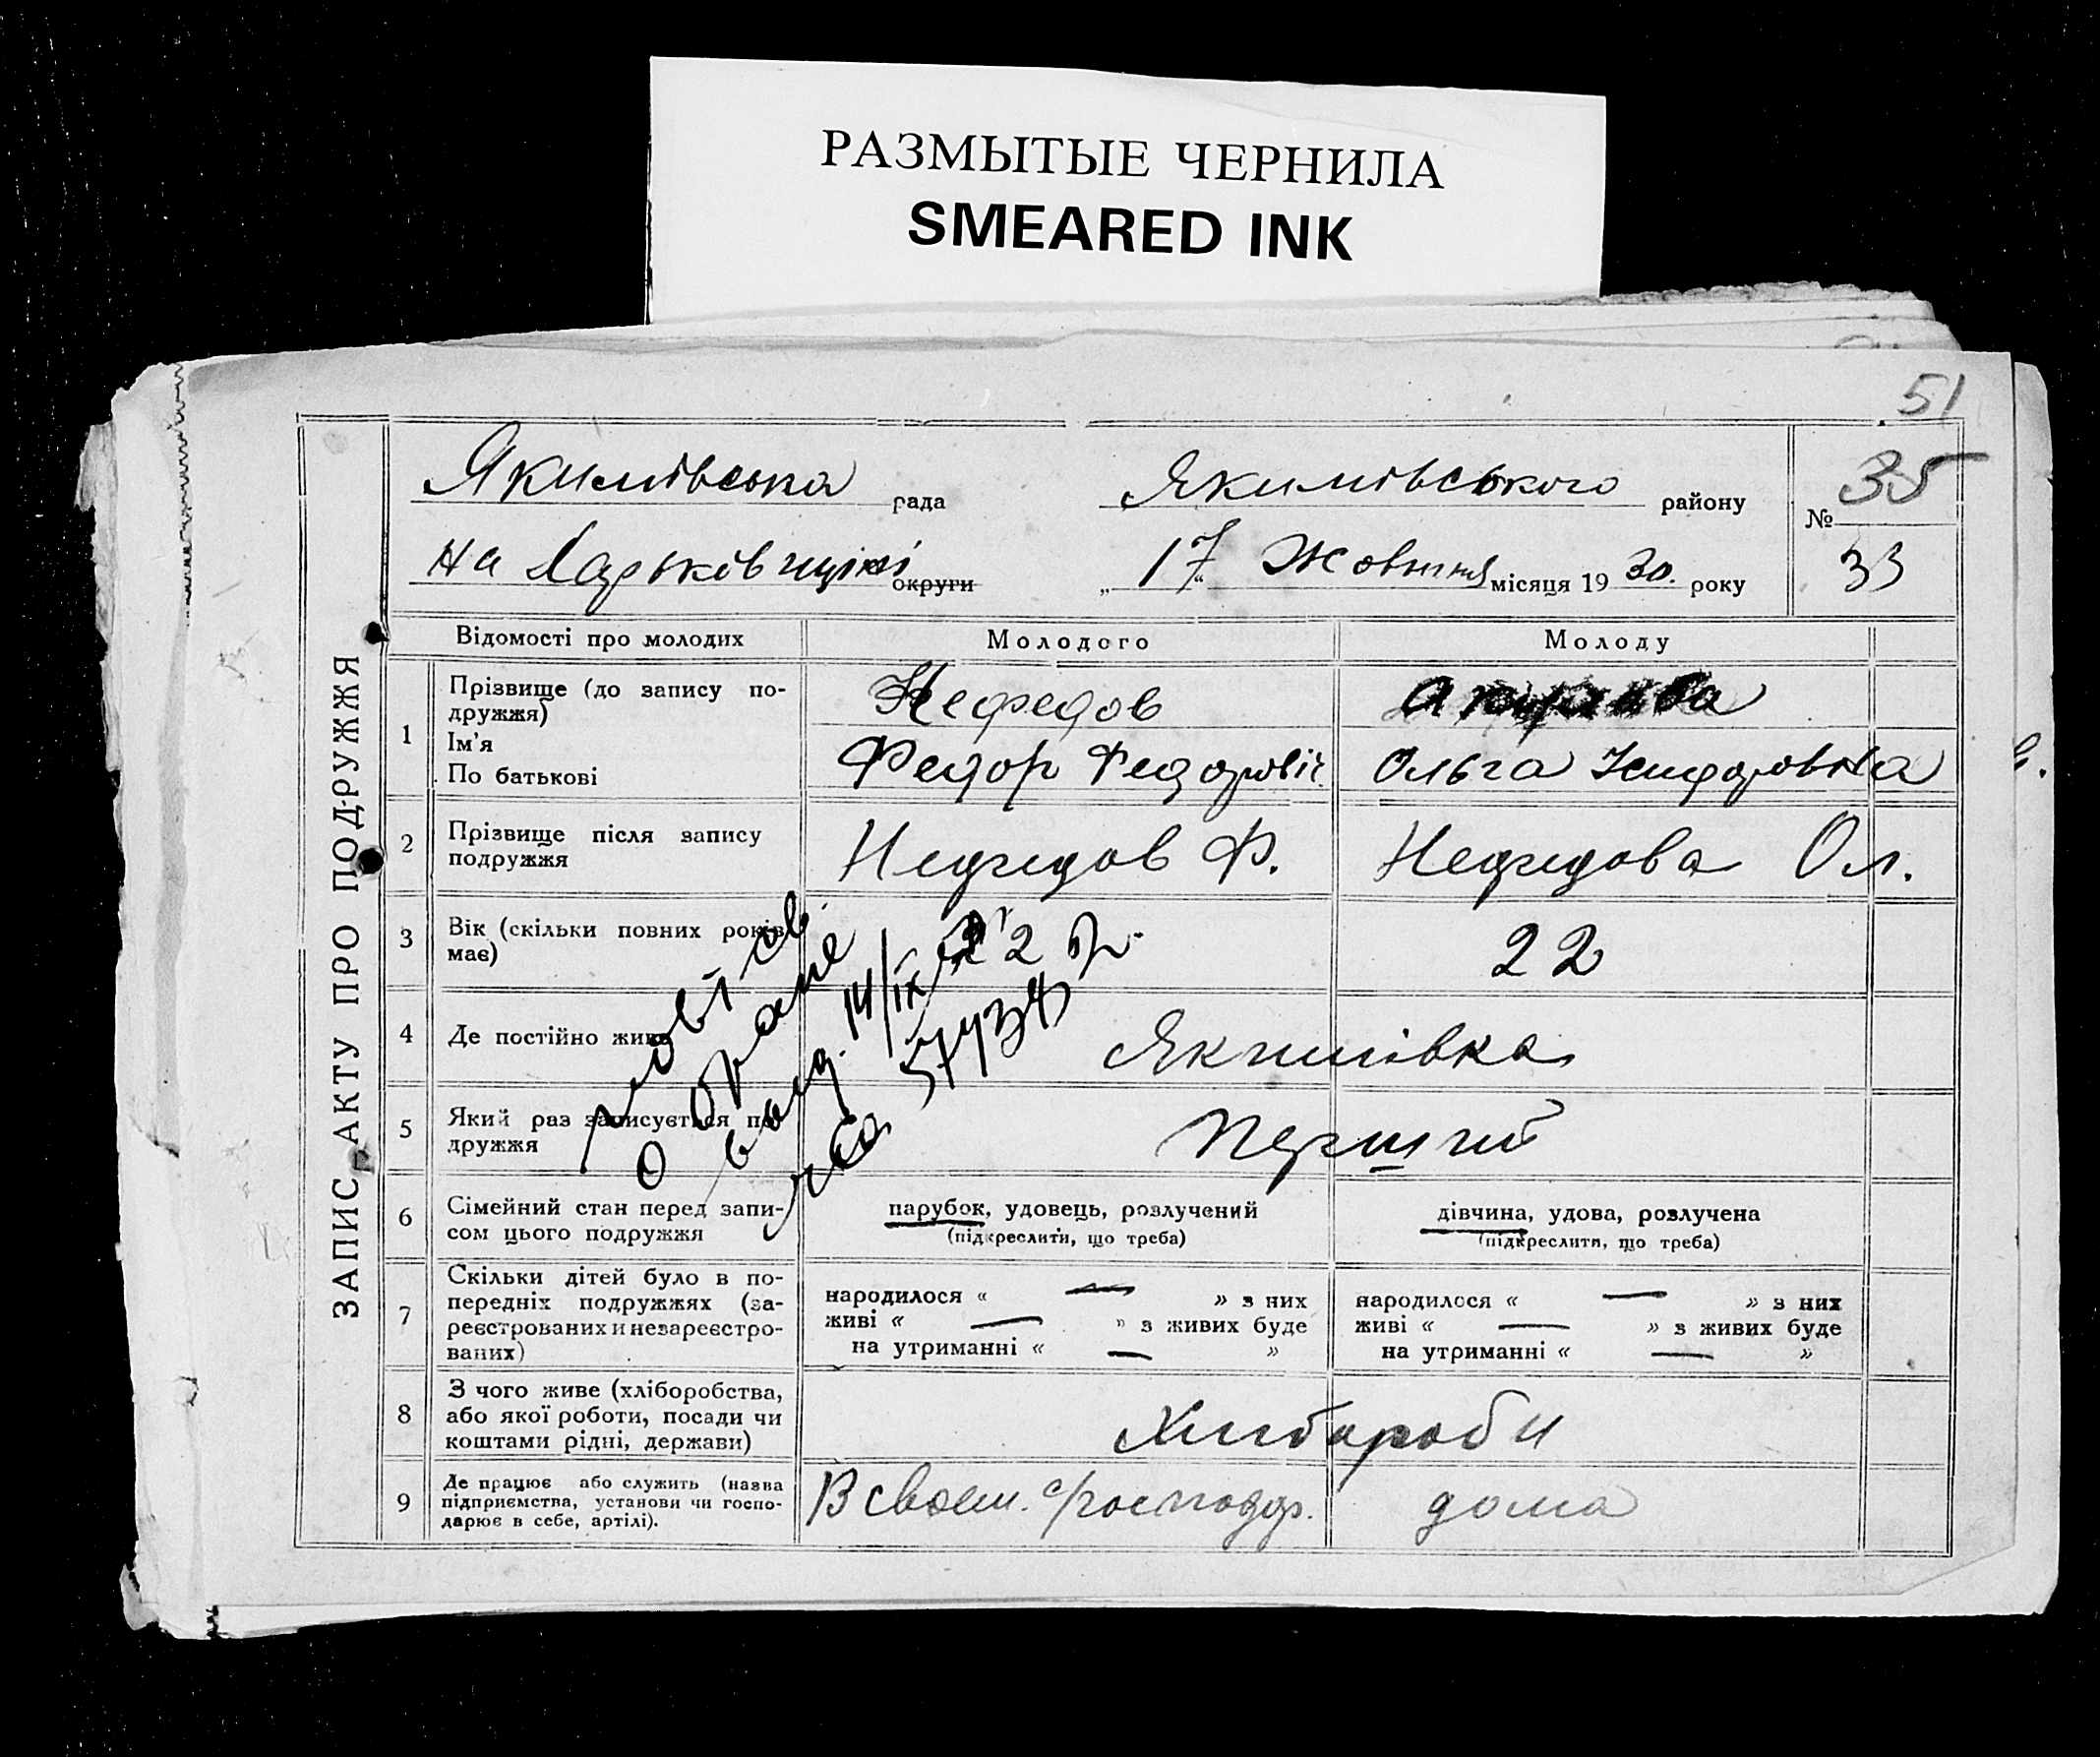 РАЗМЫТЫЕ ЧЕРНИЛА
SMEARED INK
51
ЗАПИС АКТУ ПРО ПОДРУЖЖЯ
Якимівська рада Якимівського району
№ 35
на Харьківщині округи „17“ Жовтня місяця 1930. року
33
Відомості про молодих Молодого Молоду
1 Прізвище (до запису по-
дружжя)
Ім'я
По батькові
Нефедов
Федор Федорович
Ольга
2 Прізвище після запису
подружжя
Нефедов Ф. Нефедова Ол.
3 Вік (скільки повних років
має)
22 22
4 Де постійно живе
Якимівка
5 Який раз записується по-
дружжя
Перший
6 Сімейний стан перед запи-
сом цього подружжя
парубок, удовець, розлучений
(підкреслити, що треба)
дівчина, удова, розлучена
(підкреслити, що треба)
7 Скільки дітей було в по-
передніх подружжях (за-
реєстрованих и незареєстро-
ваних)
народилося « — » з них
живі « — » з живих буде
на утриманні « — »
народилося « — » з них
живі « — » з живих буде
на утриманні « — »
8 З чого живе (хліборобства,
або якої роботи, посади чи
коштами рідні, держави)
Хлібороби
9 Де працює або служить (назва
підприємства, установи чи госпо-
дарює в себе, артілі).
В своем господар. дома
повт св.
о браке
выд. 14/IX